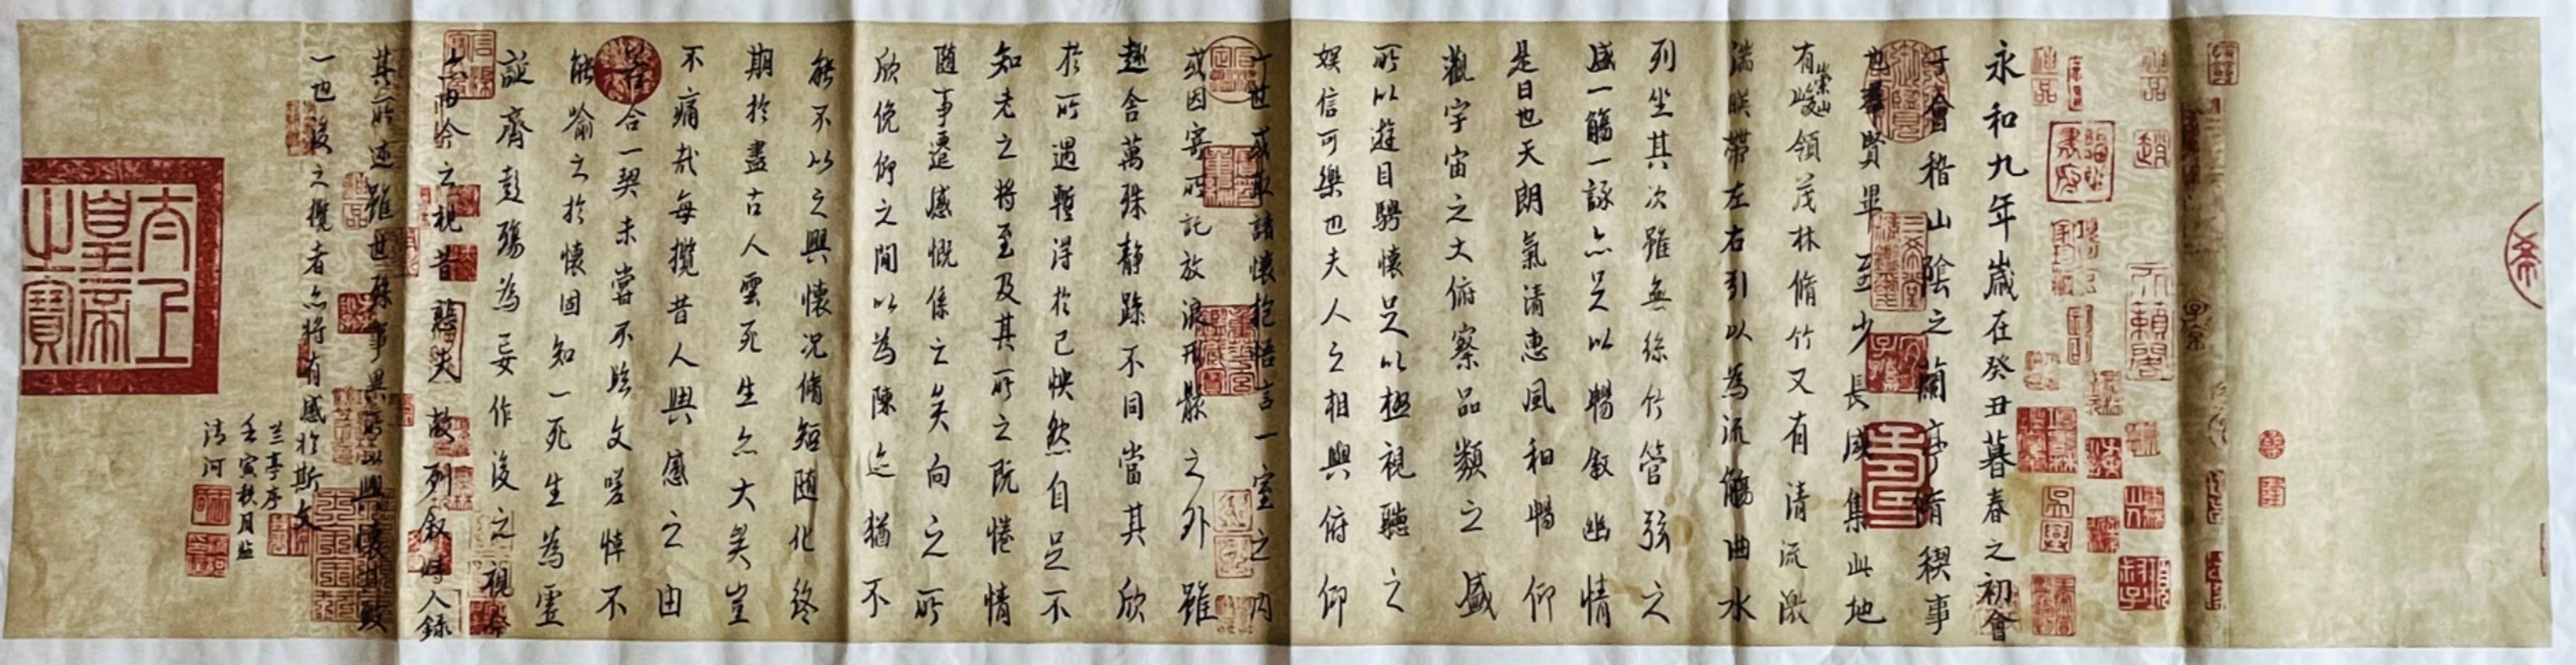 永和九年歲在癸丑暮春之初會
于會稽山陰之蘭亭脩稧事
也羣賢畢至少長咸集此地
有崇山峻領茂林脩竹又有清流激
湍暎帶左右引以為流觴曲水
列坐其次雖無絲竹管弦之
盛一觴一詠亦足以暢叙幽情
是日也天朗氣清惠風和暢仰
觀宇宙之大俯察品類之盛
所以遊目騁懷足以極視聽之
娛信可樂也夫人之相與俯仰
一世或取諸懷抱悟言一室之內
或因寄所託放浪形骸之外雖
趣舍萬殊静躁不同當其欣
於所遇暫得於己怏然自足不
知老之將至及其所之既惓情
隨事遷感慨係之矣向之所
欣俛仰之間以為陳迹猶不
能不以之興懷況脩短隨化終
期於盡古人雲死生亦大矣豈
不痛哉每攬昔人興感之由
若合一契未嘗不臨文嗟悼不
能喻之於懷固知一死生為虛
誕齊彭殤為妄作後之視今
亦由今之視昔悲夫故列叙時人錄
其所述雖世殊事異所以興懷其致
一也後之攬者亦將有感於斯文
兰亭序
壬寅秋月臨
清河
太上皇帝之寶